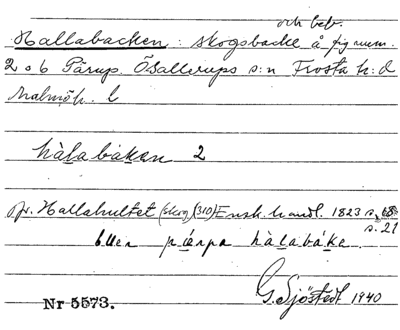 och beb.
Hallabacken: skogsbacke å fig num.
2 o 6 Pärup. Ö Sallerups s:n Frosta h:d
Malmöh. l
hàlabákan 2
jfr. Hallahultet (skog) (310) Ensk. handl. 1823 s. 68
s. 21
bler pærpa hàlabáke
G. Sjöstedt 1940
Nr 5573.